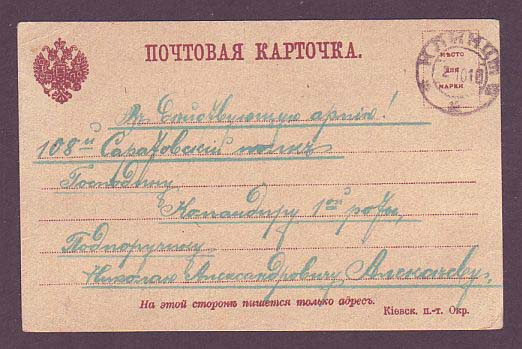 ПОЧТОВАЯ КАРТОЧКА.
МѢСТО
ДЛЯ
МАРКИ
КЛИНЦЫ
Въ Дѣйствующую армію!
108й Саратовскій полкъ
Господину
Командиру 1ой роты,
Подпоручику
Николаю Александровичу
На этой сторонѣ пишется только адресъ.
Кіевск. п.-т. Окр.